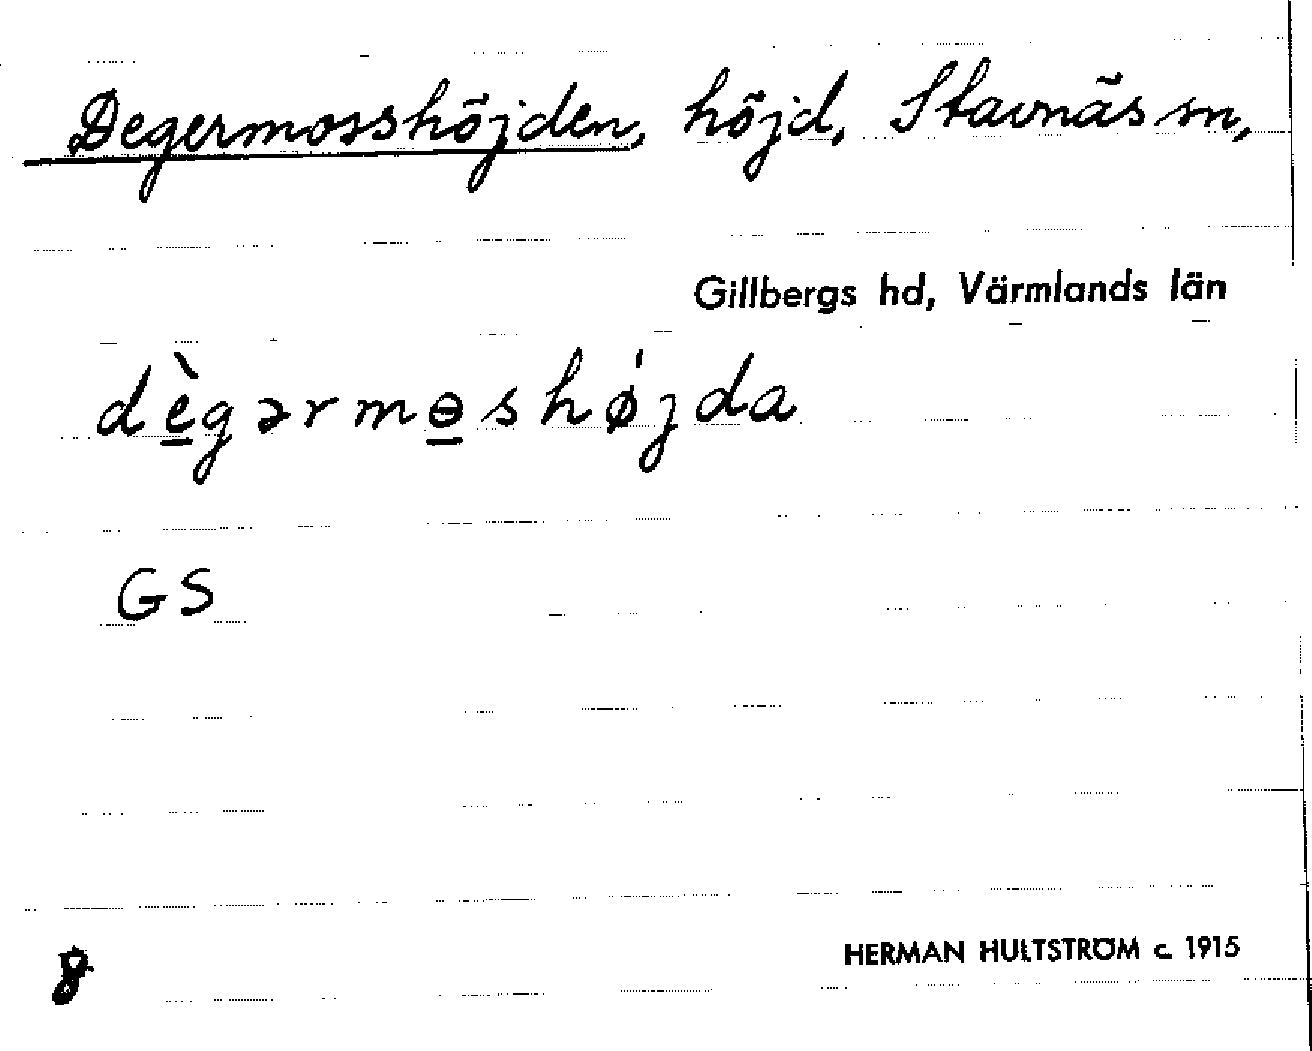 Degermosshöjden, höjd, Stavnäs sn,
Gillbergs hd, Värmlands län
dègərmɵshǿjda
GS
8
HERMAN HULTSTRÖM c. 1915